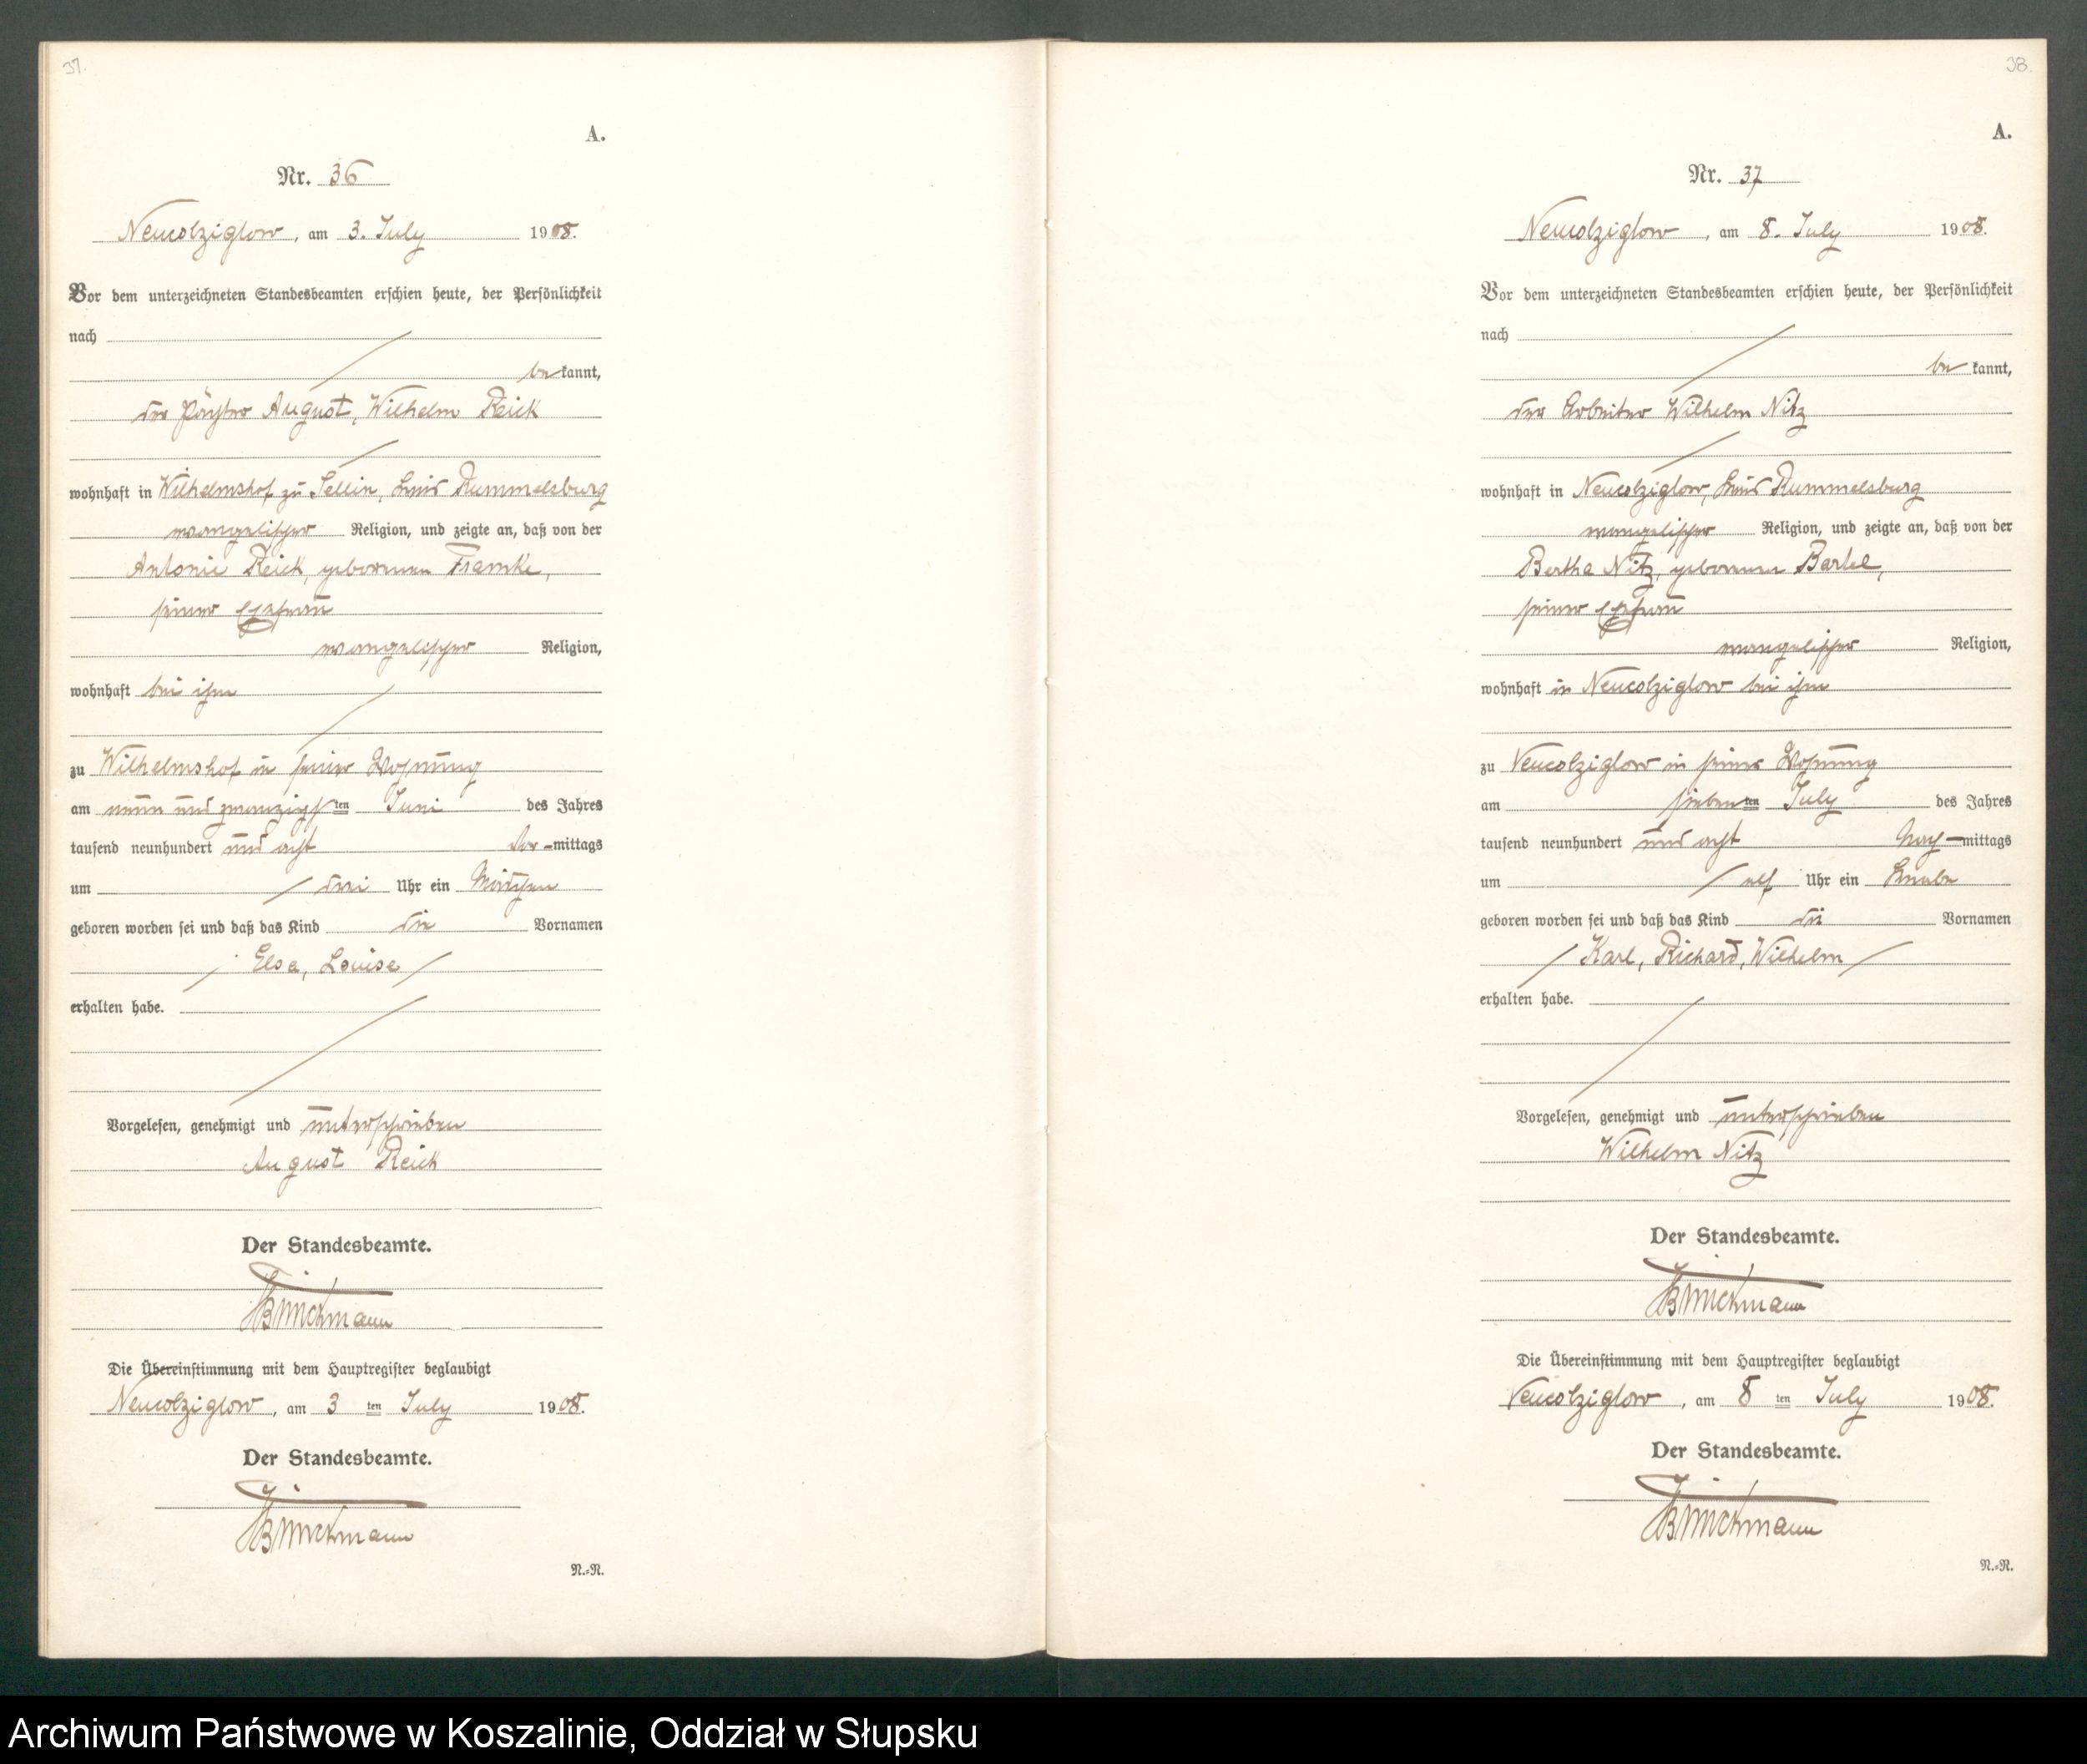 37.
A.
Nr. 36
Neucolziglow, am 3. July 1908.
Vor dem unterzeichneten Standesbeamten erschien heute, der Persönlichkeit
nach
be kannt,
der Pächter August, Wilhelm Reick
wohnhaft in Wilhelmshof zu Sellin, Kreis Rummelsburg
evangelischer Religion, und zeigte an, daß von der
Antonie Reick, geborenen Framke,
seiner Ehefrau
evangelischer Religion,
wohnhaft bei ihm
zu Wilhelmshof in seiner Wohnung
am neun und zwanzigsten Juni des Jahres
tausend neunhundert und acht Vor-mittags
um drei Uhr ein Mädchen
geboren worden sei und daß das Kind die Vornamen
Elsa, Louise
erhalten habe.
Vorgelesen, genehmigt und unterschrieben
August Reick
Der Standesbeamte.
Brinckmann
Die Übereinstimmung mit dem Hauptregister beglaubigt
Neucolziglow, am 3 ten July 1908.
Der Standesbeamte.
Brinckmann
N.-R.
38.
A.
Nr. 37
Neucolziglow, am 8. July 1908.
Vor dem unterzeichneten Standesbeamten erschien heute, der Persönlichkeit
nach
be kannt,
der Arbeiter Wilhelm Nitz
wohnhaft in Neucolziglow, Kreis Rummelsburg
evangelischer Religion, und zeigte an, daß von der
Bertha Nitz, geborenen Bartel,
seiner Ehefrau
evangelischer Religion,
wohnhaft in Neucolziglow bei ihm
zu Neucolziglow in seiner Wohnung
am siebenten July des Jahres
tausend neunhundert und acht Nach-mittags
um elf Uhr ein Knabe
geboren worden sei und daß das Kind die Vornamen
Karl, Richard, Wilhelm
erhalten habe.
Vorgelesen, genehmigt und unterschrieben
Wilhelm Nitz
Der Standesbeamte.
Brinckmann
Die Übereinstimmung mit dem Hauptregister beglaubigt
Neucolziglow, am 8 ten July 1908.
Der Standesbeamte.
Brinckmann
N.-R.
Archiwum Państwowe w Koszalinie, Oddział w Słupsku